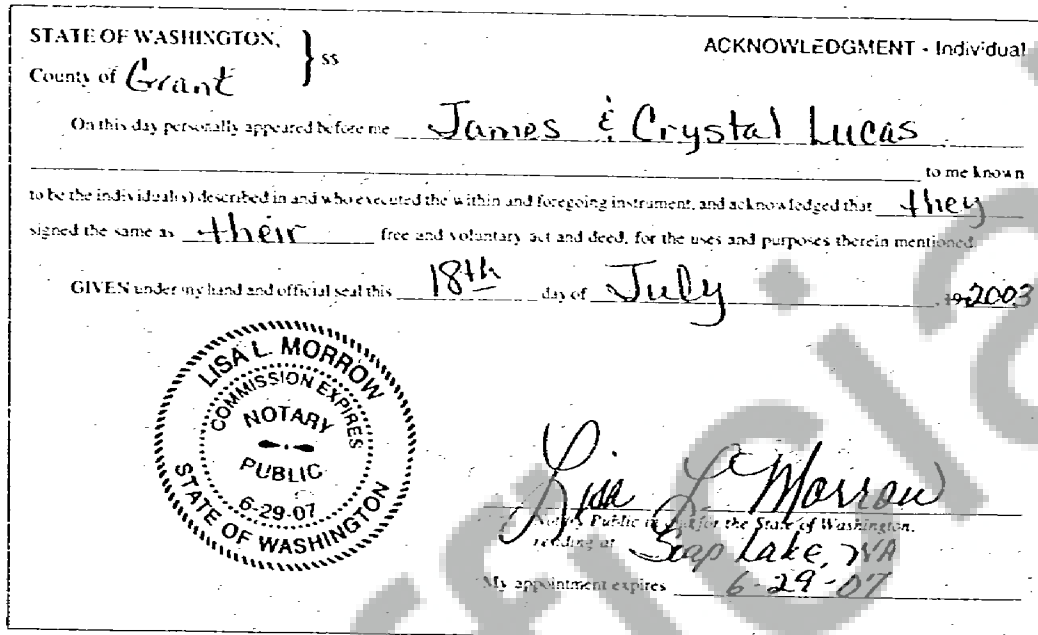 STATE OF WASHINGTON, } ss
ACKNOWLEDGMENT - Individual
County of Grant
On this day personally appeared before me James & Crystal Lucas
to me known
to be the individual(s) described in and who executed the within and foregoing instrument, and acknowledged that they
signed the same as their free and voluntary act and deed, for the uses and purposes therein mentioned.
GIVEN under my hand and official seal this 18th day of July, 19 2003
LISA L. MORROW
COMMISSION EXPIRES
NOTARY
PUBLIC
6-29-07
STATE OF WASHINGTON
Lisa L Morrow
Notary Public in and for the State of Washington,
residing at Soap Lake, WA
My appointment expires 6-29-07